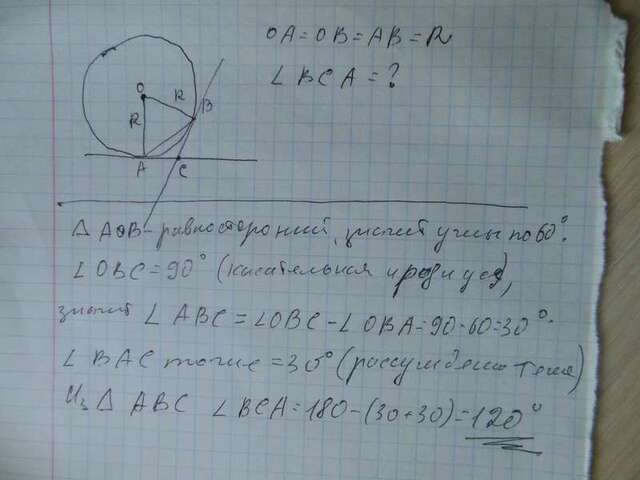 OA = OB = AB = R
∠ BCA = ?
O
R
R
B
A
C
Δ AOB - равносторонний, значит углы по 60°.
∠ OBC = 90° (касательная и радиус),
значит ∠ ABC = ∠OBC - ∠ OBA = 90 - 60 = 30°.
∠ BAC тоже = 30° (рассуждения те же)
Из Δ ABC ∠ BCA = 180 - (30 + 30) = 120°